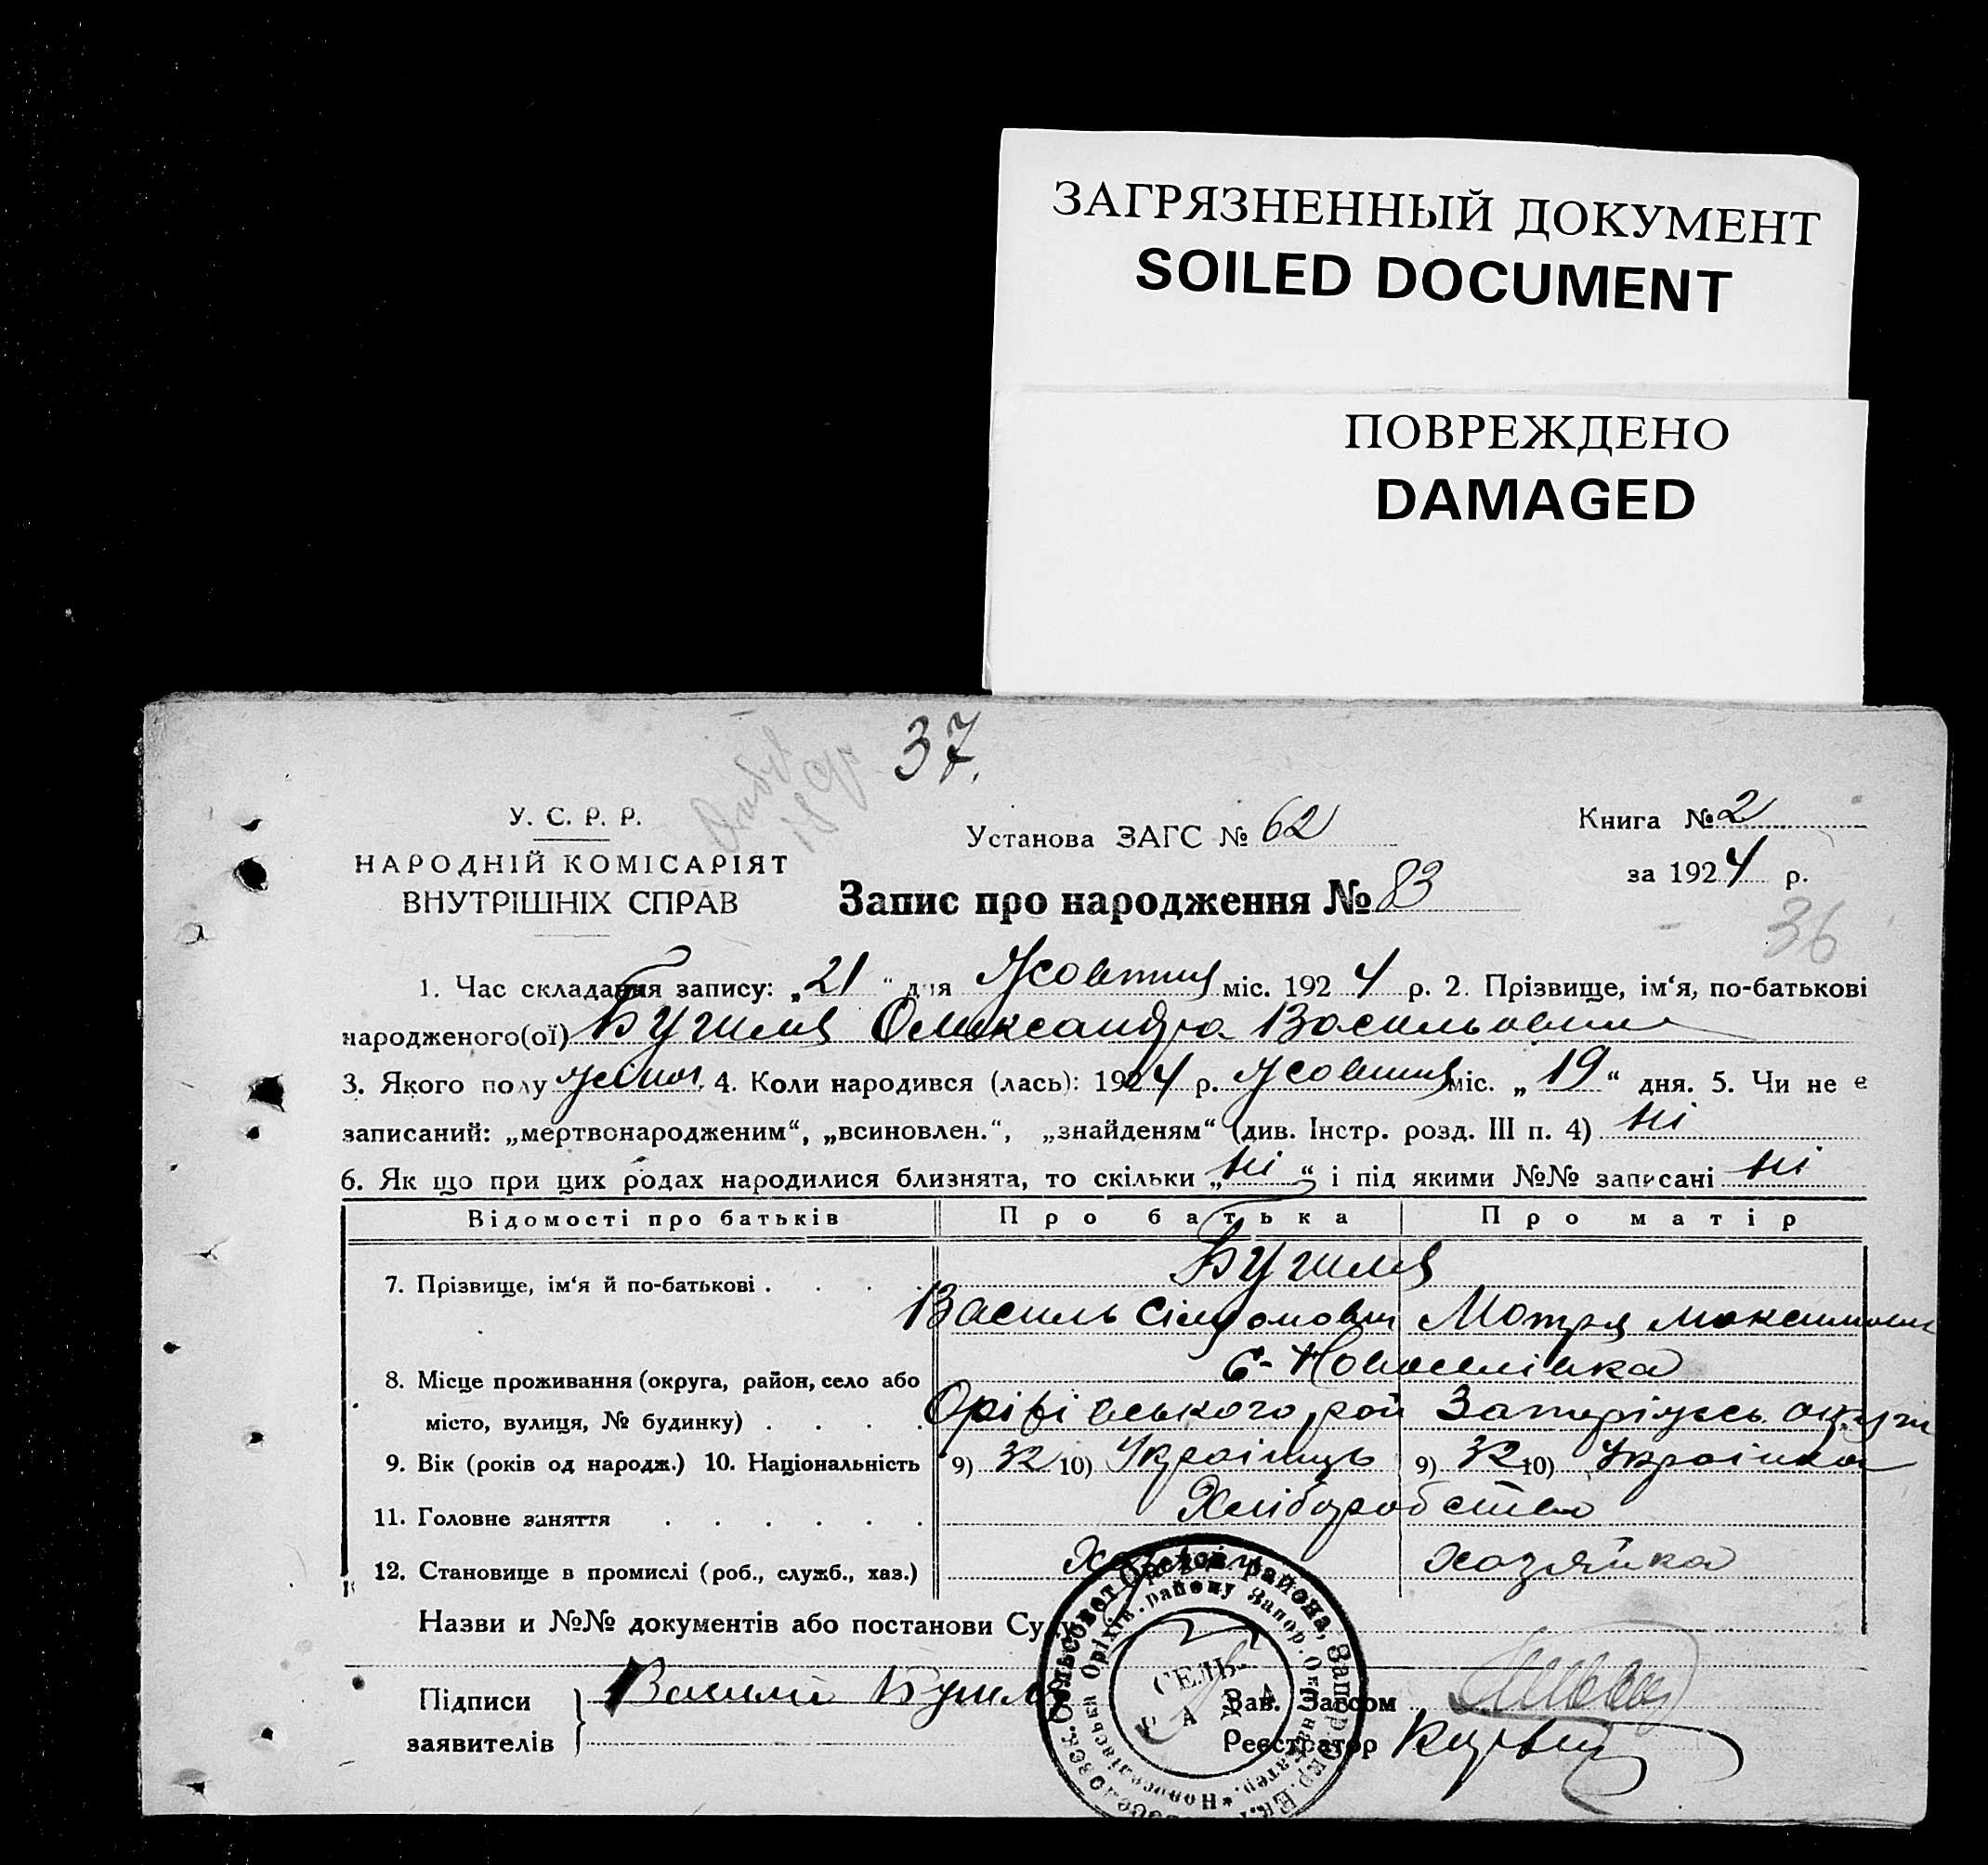 ЗАГРЯЗНЕННЫЙ ДОКУМЕНТ
SOILED DOCUMENT
ПОВРЕЖДЕНО
DAMAGED
37.
У. С. Р. Р.
НАРОДНІЙ КОМІСАРІЯТ
ВНУТРІШНІХ СПРАВ
Установа ЗАГС № 62
Книга № 2
за 1924 р.
Запис про народження № 83
36
1. Час складання запису: „21“ дня Жовтня міс. 1924 р. 2. Прізвище, ім‘я, по-батькові
народженого(ої) Олександра Васильовна
3. Якого полу жіноч. 4. Коли народився (лась): 1924 р. Жовтня міс. „19“ дня. 5. Чи не є
записаний: „мертвонародженим“, „всиновлен.“, „знайденям“ (див. Інстр. розд. III п. 4) ні
6. Як що при цих родах народилися близнята, то скільки „ні“ і під якими №№ записані ні
Відомості про батьків Про батька Про матір
7. Прізвище, ім‘я й по-батькові
Василь Мотря Максимовн
с- Новоселівка
8. Місце проживання (округа, район, село або
місто, вулиця, № будинку) Оріхівського рай Запоріжсь округи
9. Вік (років од народж.) 10. Національність 9) 32 10) Украінець 9) 32 10) Украінка
11. Головне заняття Хліборобство
12. Становище в промислі (роб., служб., хаз.) хозяйка
Назви и №№ документів або постанови Суду
Підписи
заявителів
Василь
СЕЛЬ-
РАДА
Зав. Загсом
Реєстратор